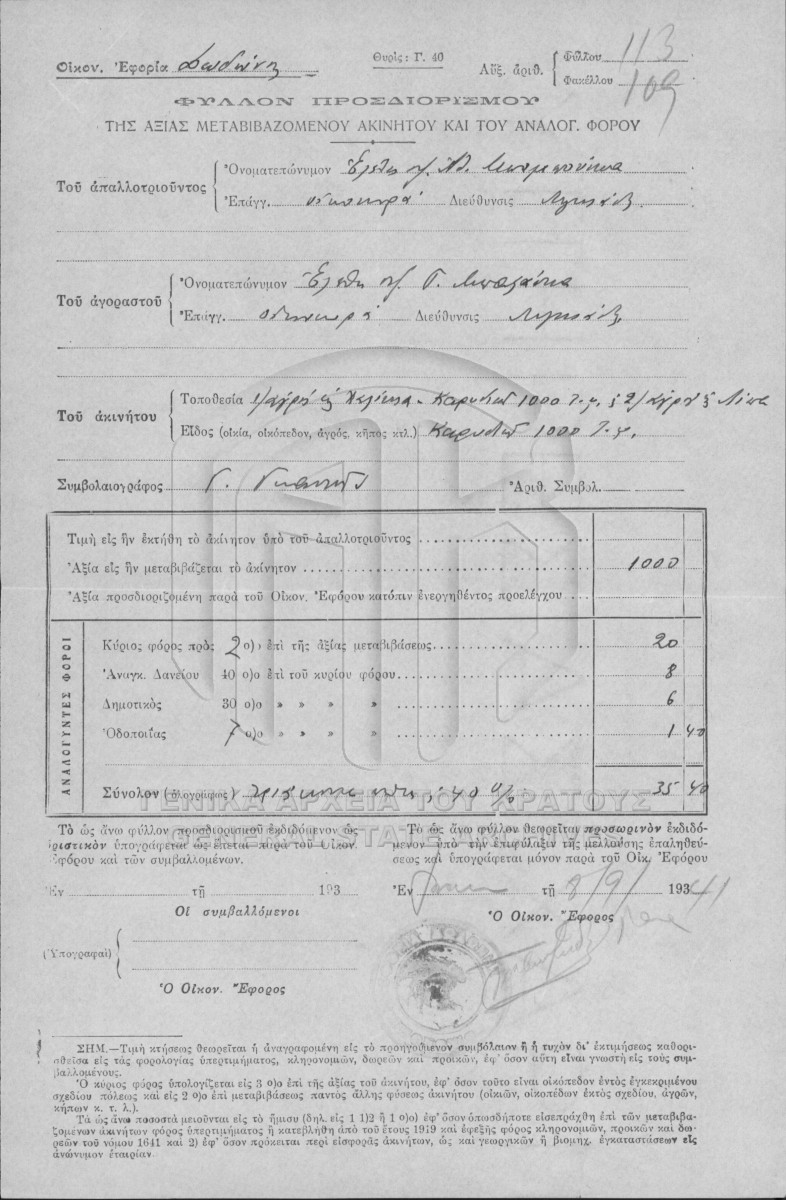 Οἰκον. Ἐφορία Δωδώνης
Θυρίς: Γ. 40
Αὔξ. ἀριθ. Φύλλου 113
Φακέλλου 109
ΦΥΛΛΟΝ ΠΡΟΣΔΙΟΡΙΣΜΟΥ
ΤΗΣ ΑΞΙΑΣ ΜΕΤΑΒΙΒΑΖΟΜΕΝΟΥ ΑΚΙΝΗΤΟΥ ΚΑΙ ΤΟΥ ΑΝΑΛΟΓ. ΦΟΡΟΥ
Τοῦ ἀπαλλοτριοῦντος
Ὀνοματεπώνυμον
Ἐπάγγ. Διεύθυνσις
Τοῦ ἀγοραστοῦ
Ὀνοματεπώνυμον
Ἐπάγγ. Διεύθυνσις
Τοῦ ἀκινήτου
Τοποθεσία 1000 τ.μ.
Εἶδος (οἰκία, οἰκόπεδον, ἀγρός, κῆπος κτλ.) 1000 τ.μ.
Συμβολαιογράφος Γ. Ἀριθ. Συμβολ.
Τιμὴ εἰς ἣν ἐκτήθη τὸ ἀκίνητον ὑπὸ τοῦ ἀπαλλοτριοῦντος
Ἀξία εἰς ἣν μεταβιβάζεται τὸ ἀκίνητον 1000
Ἀξία προσδιοριζομένη παρὰ τοῦ Οἰκον. Ἐφόρου κατόπιν ἐνεργηθέντος προελέγχου
ΑΝΑΛΟΓΟΥΝΤΕΣ ΦΟΡΟΙ
Κύριος φόρος πρὸς 2 ο)ο ἐπὶ τῆς ἀξίας μεταβιβάσεως 20
Ἀναγκ. Δανείου 40 ο)ο ἐπὶ τοῦ κυρίου φόρου 8
Δημοτικὸς 30 ο)ο » » » » 6
Ὁδοποιΐας 7 ο)ο » » » » 1 40
Σύνολον (ὁλογράφως) 40 % 35 40
ΓΕΝΙΚΑ ΑΡΧΕΙΑ ΤΟΥ ΚΡΑΤΟΥΣ
GENERAL STATE
Τὸ ὡς ἄνω φύλλον προσδιορισμοῦ ἐκδιδόμενον ὡς
ὁριστικὸν ὑπογράφεται ὡς ἕπεται παρὰ τοῦ Οἰκον.
Ἐφόρου καὶ τῶν συμβαλλομένων.
Ἐν τῇ 193
Οἱ συμβαλλόμενοι
(Ὑπογραφαὶ)
Ὁ Οἰκον. Ἔφορος
Τὸ ὡς ἄνω φύλλον θεωρεῖται προσωρινὸν ἐκδιδό-
μενον ὑπὸ τὴν ἐπιφύλαξιν τῆς μελλούσης ἐπαληθεύ-
σεως καὶ ὑπογράφεται μόνον παρὰ τοῦ Οἰκ. Ἐφόρου
Ἐν τῇ 8/9/ 193 41
Ὁ Οἰκον. Ἔφορος
ΣΗΜ.—Τιμὴ κτήσεως θεωρεῖται ἡ ἀναγραφομένη εἰς τὸ προηγούμενον συμβόλαιον ἢ ἡ τυχὸν δι' ἐκτιμήσεως καθορι-
σθεῖσα εἰς τὰς φορολογίας ὑπερτιμήματος, κληρονομιῶν, δωρεῶν καὶ προικῶν, ἐφ' ὅσον αὕτη εἶναι γνωστὴ εἰς τοὺς συμ-
βαλλομένους.
Ὁ κύριος φόρος ὑπολογίζεται εἰς 3 ο)ο ἐπὶ τῆς ἀξίας τοῦ ἀκινήτου, ἐφ' ὅσον τοῦτο εἶναι οἰκόπεδον ἐντὸς ἐγκεκριμένου
σχεδίου πόλεως καὶ εἰς 2 ο)ο ἐπὶ μεταβιβάσεως παντὸς ἄλλης φύσεως ἀκινήτου (οἰκιῶν, οἰκοπέδων ἐκτὸς σχεδίου, ἀγρῶν,
κήπων κ. τ. λ.).
Τὰ ὡς ἄνω ποσοστὰ μειοῦνται εἰς τὸ ἥμισυ (δηλ. εἰς 1 1)2 ἢ 1 ο)ο) ἐφ' ὅσον ὁπωσδήποτε εἰσεπράχθη ἐπὶ τῶν μεταβιβα-
ζομένων ἀκινήτων φόρος ὑπερτιμήματος ἢ κατεβλήθη ἀπὸ τοῦ ἔτους 1919 καὶ ἐφεξῆς φόρος κληρονομιῶν, προικῶν καὶ δω-
ρεῶν τοῦ νόμου 1641 καὶ 2) ἐφ' ὅσον πρόκειται περὶ εἰσφορᾶς ἀκινήτων, ὡς καὶ γεωργικῶν ἢ βιομηχ. ἐγκαταστάσεων εἰς
ἀνώνυμον ἑταιρίαν.